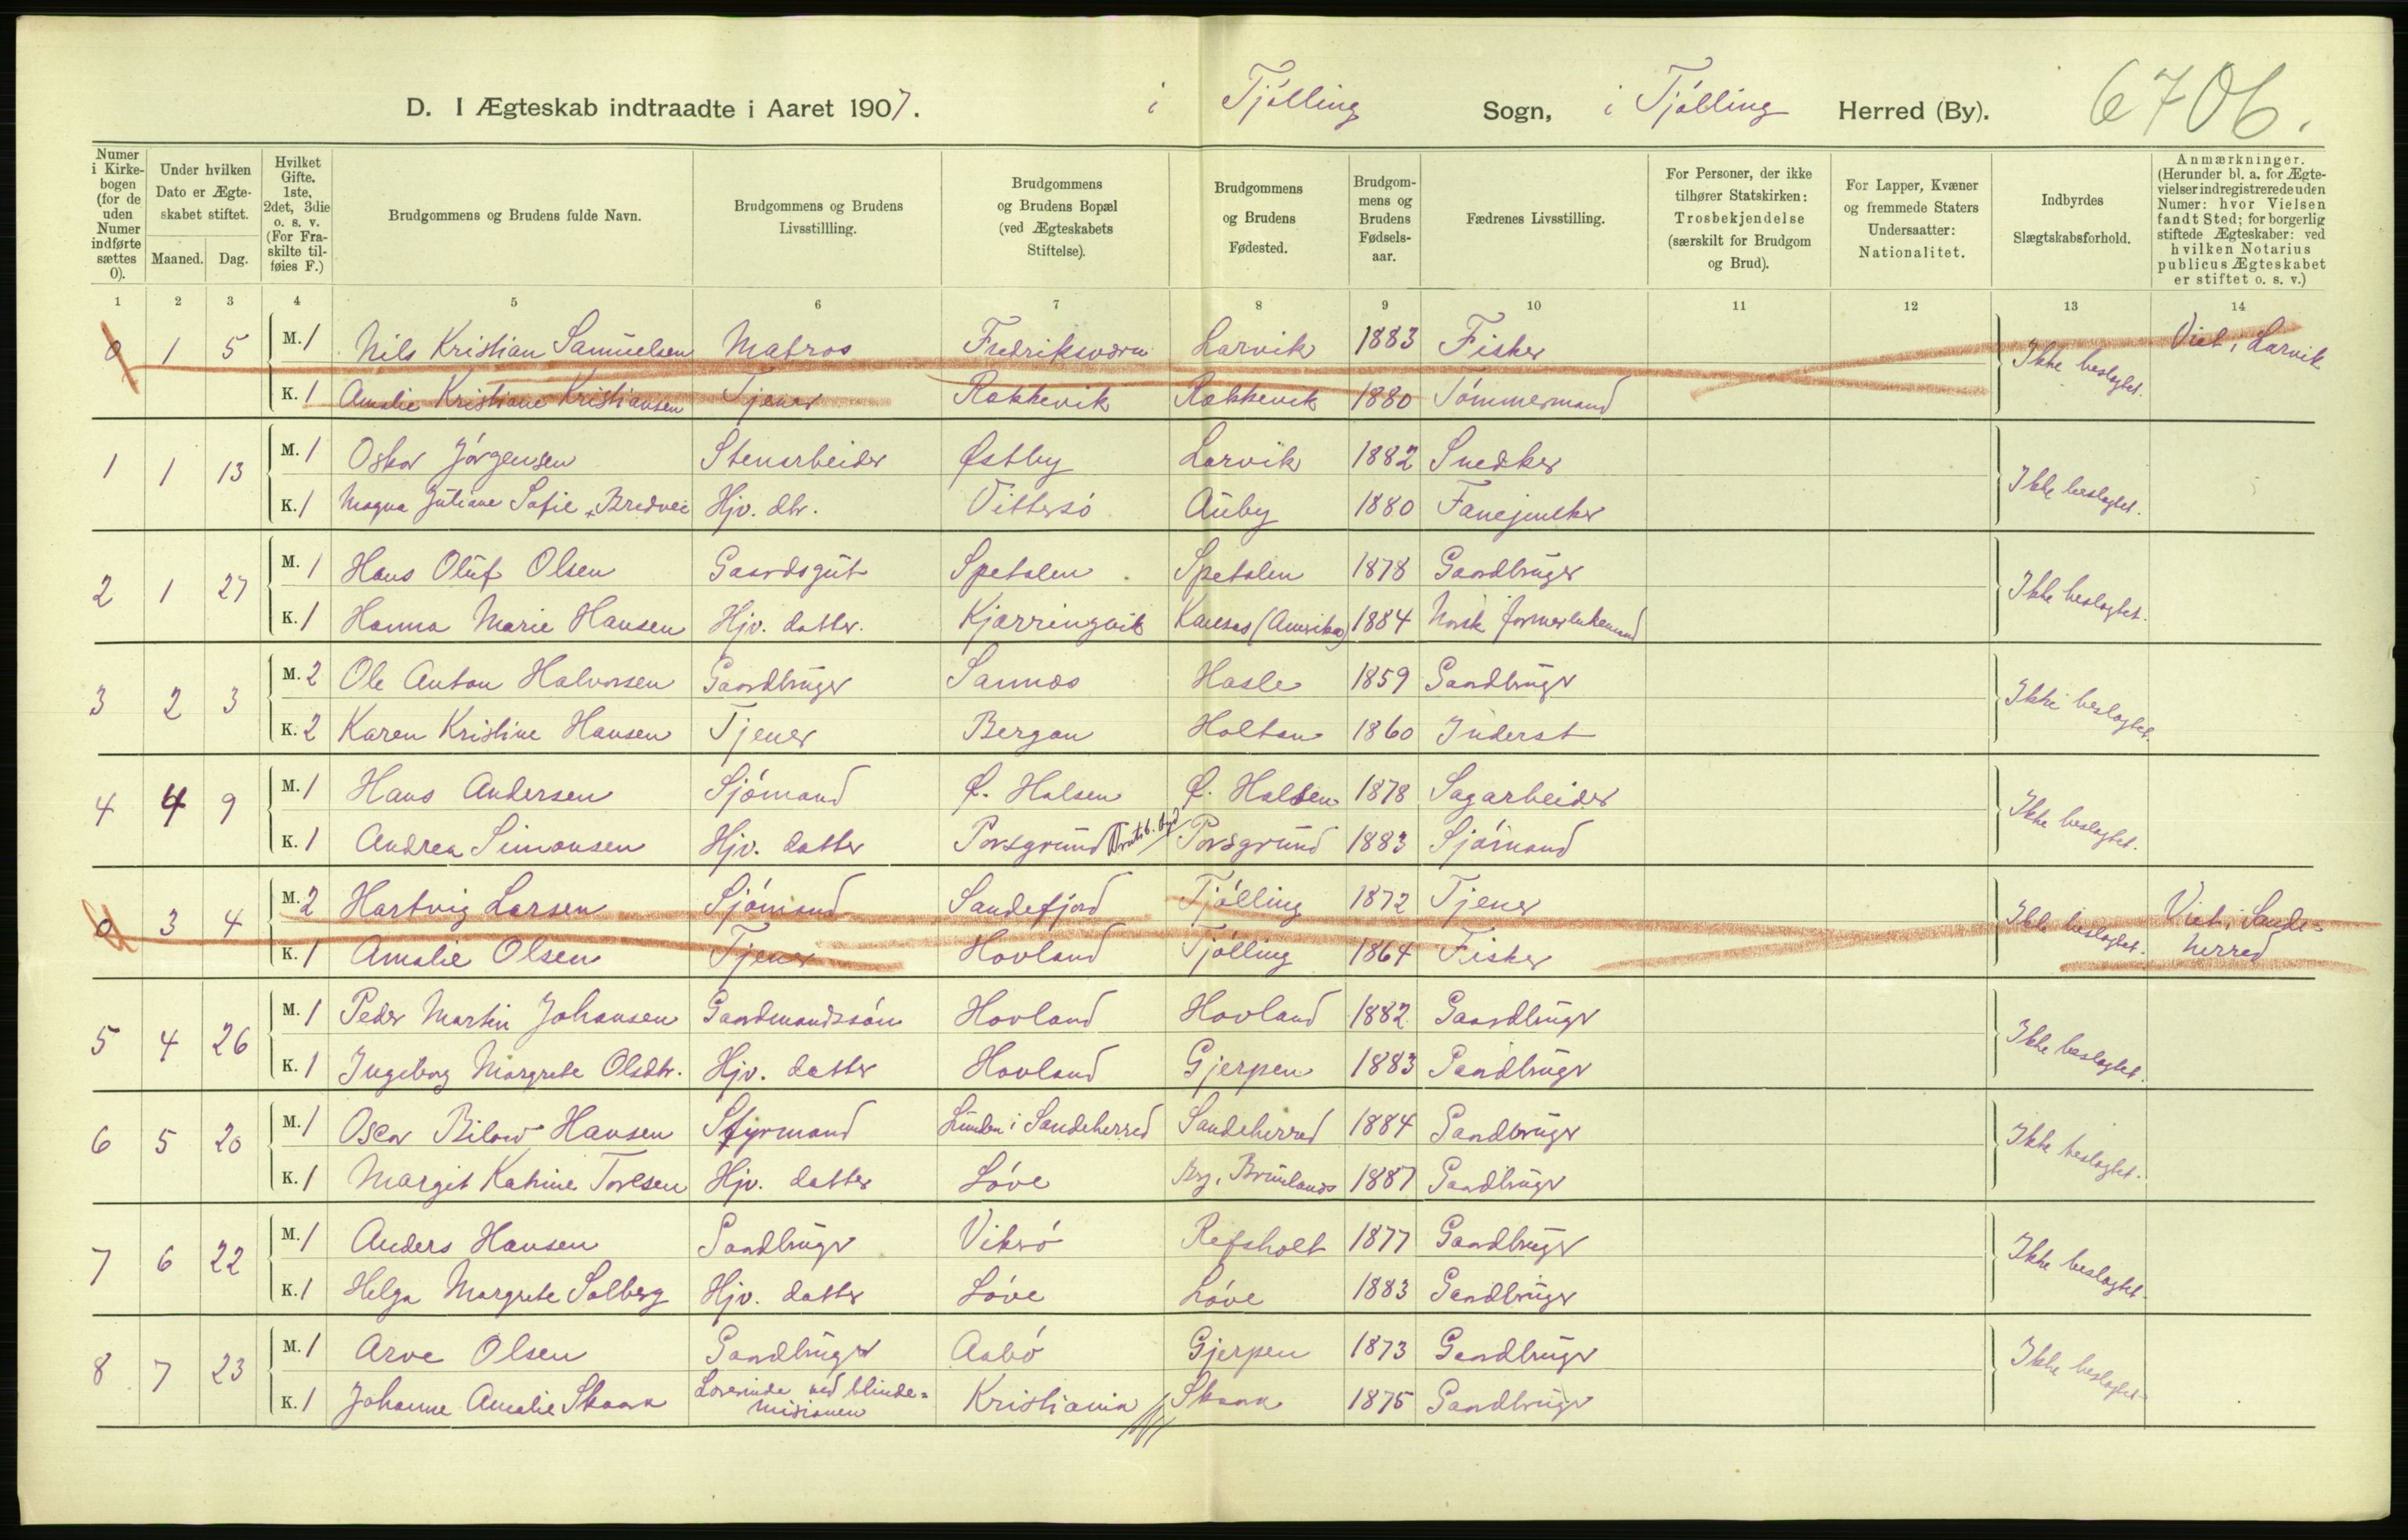 D. I Ægteskab indtraadte i Aaret 1907. i Tjölling Sogn, i Tjölling Herred (By). 6706.
Numer i Kirkebogen (for de uden Numer indførte sættes 0).
Under hvilken Dato er Ægteskabet stiftet.
Maaned. Dag.
Hvilket Gifte. 1ste, 2det, 3die o. s. v. (For Fraskilte tilføies F.)
Brudgommens og Brudens fulde Navn.
Brudgommens og Brudens Livsstillling.
Brudgommens og Brudens Bopæl (ved Ægteskabets Stiftelse).
Brudgommens og Brudens Fødested.
Brudgommens og Brudens Fødselsaar.
Fædrenes Livsstilling.
For Personer, der ikke tilhører Statskirken: Trosbekjendelse (særskilt for Brudgom og Brud).
For Lapper, Kvæner og fremmede Staters Undersaatter: Nationalitet.
Indbyrdes Slægtskabsforhold.
Anmærkninger. (Herunder bl. a. for Ægtevielser indregistrerede uden Numer: hvor Vielsen fandt Sted; for borgerlig stiftede Ægteskaber: ved hvilken Notarius publicus Ægteskabet er stiftet o. s. v.)
1 2 3 4 5 6 7 8 9 10 11 12 13 14
0 1 5 M. 1 Nils Kristian Samuelsen Matros Fredriksværn Larvik 1883 Fisker Ikke beslegtet. Viet i Larvik
K. 1 Amalie Kristiane Kristiansen Tjener Rækkevik Rækkevik 1880 Tömmermand
1 1 13 M. 1 Oskar Jörgensen Stenarbeider Østby Larvik 1882 Snedker Ikke beslegtet.
K. 1 Magna Juliane Sofie Bredvei Hjv. dtr. Vittersö Auby 1880 Fanejunker
2 1 27 M. 1 Hans Oluf Olsen Gaardsgut Spetalen Spetalen 1878 Gaardbruger Ikke beslegtet.
K. 1 Hanna Marie Hansen Hjv. datter. Kjærringvik Kansas (Amerika) 1884 Norsk
3 2 3 M. 2 Ole Anton Halvorsen Gaardbruger Sannæs Hasle 1859 Gaardbruger Ikke beslegtet.
K. 2 Karen Kristine Hansen Tjener Bergan Holtan 1860 Inderst
4 4 9 M. 1 Hans Andersen Sjömand Ø. Halsen Ø. Halsen 1878 Sagarbeider Ikke beslegtet.
K. 1 Andrea Simonsen Hjv. datter Porsgrund Porsgrund 1883 Sjömand
0 3 4 M. 2 Hartvig Larsen Sjömand Sandefjord Tjölling 1872 Tjener Ikke beslegtet. Viet i Sandeherred
K. 1 Amalie Olsen Tjener Hovland Tjölling 1864 Fisker
5 4 26 M. 1 Peder Martin Johansen Gaardmandssön Hovland Hovland 1882 Gaardbruger Ikke beslegtet.
K. 1 Ingeborg Margrete Olsdtr. Hjv. datter Hovland Gjerpen 1883 Gaardbruger
6 5 20 M. 1 Oscar Bilow Hansen Styrmand Lunden i Sandeherred Sandeherred 1884 Gaardbruger Ikke beslegtet.
K. 1 Margit Katrine Toresen Hjv. datter Löve Brunlanes 1887 Gaardbruger
7 6 22 M. 1 Anders Hansen Gaardbruger Viksö Refsholt 1877 Gaardbruger Ikke beslegtet.
K. 1 Helga Margrete Solberg Hjv. datter Löve Löve 1883 Gaardbruger
8 7 23 M. 1 Arve Olsen Gaardbruger Aabö Gjerpen 1873 Gaardbruger Ikke beslegtet.
K. 1 Johanne Amalie Skaara Lærerinde ved blindemisionen Kristiania Skaara 1875 Gaardbruger